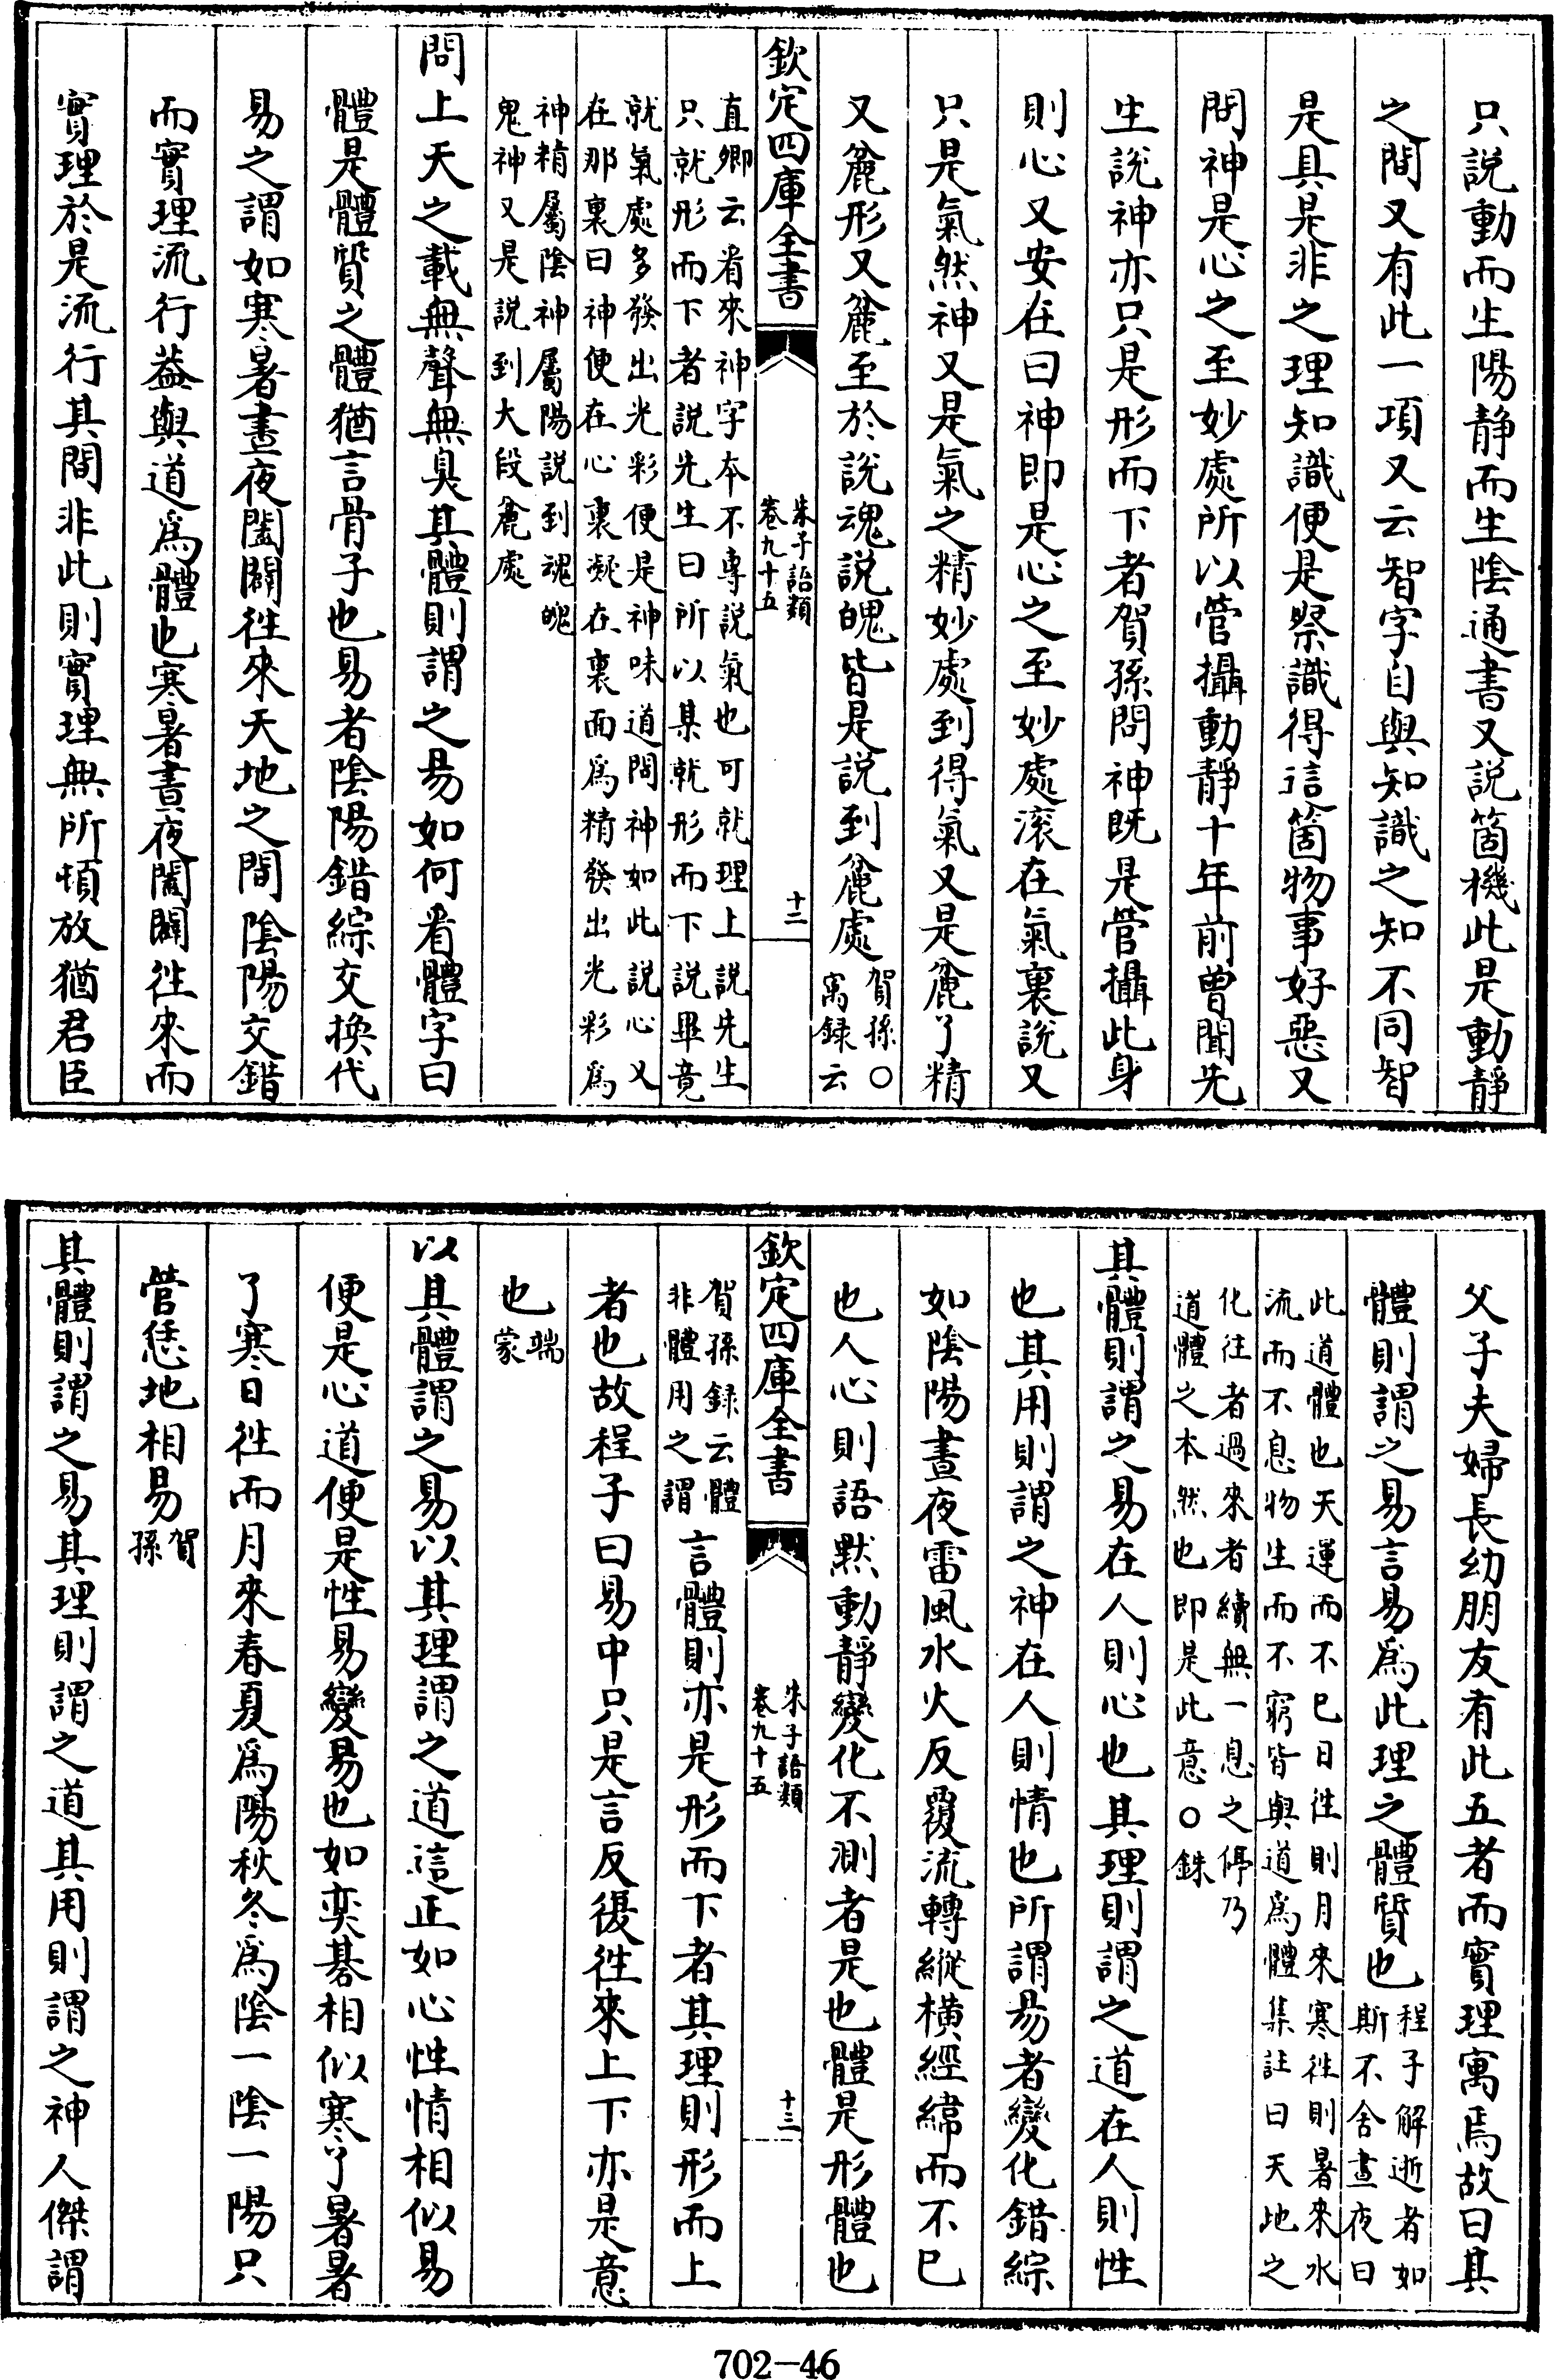 只說動而生陽靜而生陰通書又說箇機此是動靜
之間又有此一項又云智字自與知識之知不同智
是具是非之理知識便是察識得這箇物事好惡又
問神是心之至妙處所以管攝動靜十年前曾聞先
生說神亦只是形而下者賀孫問神既是管攝此身
則心又安在曰神即是心之至妙處滚在氣裏說又
只是氣然神又是氣之精妙處到得氣又是麄了精
又麄形又麄至於說魂說魄皆是說到麄處賀孫○
㝢録云
欽定四庫全書
朱子語類
卷九十五
十二
直卿云看來神字本不專說氣也可就理上說先生
只就形而下者說先生曰所以某就形而下說畢竟
就氣處多發出光彩便是神味道問神如此說心又
在那裏曰神便在心裏凝在裏面爲精發出光彩爲
神精屬陰神屬陽說到魂魄
鬼神又是說到大段麄處
問上天之載無聲無臭其體則謂之易如何看體字曰
體是體質之體猶言骨子也易者陰陽錯綜交換代
易之謂如寒暑晝夜闔闢徃來天地之間陰陽交錯
而實理流行葢與道爲體也寒暑晝夜闔闢徃來而
實理於是流行其間非此則實理無所頓放猶君臣
父子夫婦長幼朋友有此五者而實理寓焉故曰其
體則謂之易言易爲此理之體質也程子解逝者如
斯不舍晝夜曰
此道體也天運而不已日徃則月來寒徃則暑來水
流而不息物生而不窮皆與道爲體集註曰天地之
化往者過來者續無一息之停乃
道體之本然也即是此意○銖
其體則謂之易在人則心也其理則謂之道在人則性
也其用則謂之神在人則情也所謂易者變化錯綜
如陰陽晝夜雷風水火反覆流轉縱橫經緯而不已
也人心則語黙動靜變化不測者是也體是形體也
欽定四庫全書
朱子語類
卷九十五
十三
賀孫録云體
非體用之謂
言體則亦是形而下者其理則形而上
者也故程子曰易中只是言反復徃來上下亦是意
也端
蒙
以其體謂之易以其理謂之道這正如心性情相似易
便是心道便是性易變易也如奕棊相似寒了暑暑
了寒日徃而月來春夏爲陽秋冬爲陰一陰一陽只
管恁地相易賀
孫
其體則謂之易其理則謂之道其用則謂之神人傑謂
702-46